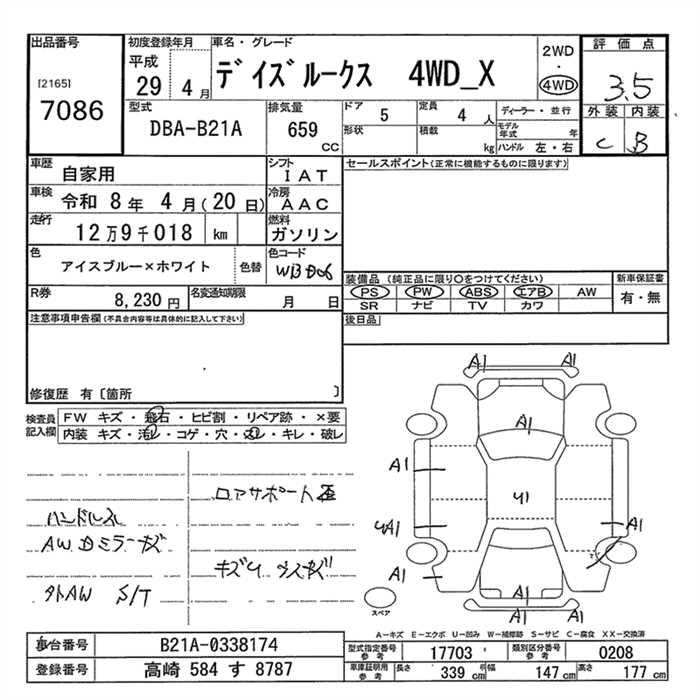 出品番号
[2165]
7086
初度登録年月
平成
29 4 月
車名・グレード
デイズルークス 4WD_X
2WD
・
4WD
評価点
3.5
外装 内装
C B
型式
DBA-B21A
排気量
659
CC
ドア
5
定員
4 人
形状
積載
kg
ディーラー・並行
モデル年式 年
ハンドル 左・右
車歴
自家用
シフト
IAT
車検
令和 8 年 4 月 ( 20 日)
冷房
AAC
走行
12 万 9 千 018 km
燃料
ガソリン
色
アイスブルー×ホワイト
色替
色コード
R券
8,230 円
名変通知期限
月 日
セールスポイント(正常に機能するものに限ります)
装備品 (純正品に限り○をつけてください)
PS PW ABS エアB AW
SR ナビ TV カワ
新車保証書
有・無
後日品
注意事項申告欄(不具合内容等は具体的に記入して下さい)
修復歴 有〔箇所 〕
検査員記入欄
FW キズ・飛石・ヒビ割・リペア跡・×要
内装 キズ・汚レ・コゲ・穴・スレ・キレ・破レ
ロアサポート歪
ハンドルスレ
AW Dミラーキズ
キズU
外AW S/T
A1 A1
A1
A1
U1
UA1
A1
A1
A1
A1 A1
スペア
A-キズ E-エクボ U-凹み W-補修跡 S-サビ C-腐食 XX-交換済
車台番号
B21A-0338174
登録番号
高崎 584 す 8787
型式指定番号
参考
17703
類別区分番号
参考
0208
車庫証明用
参考
長さ 339 cm 幅 147 cm 高さ 177 cm